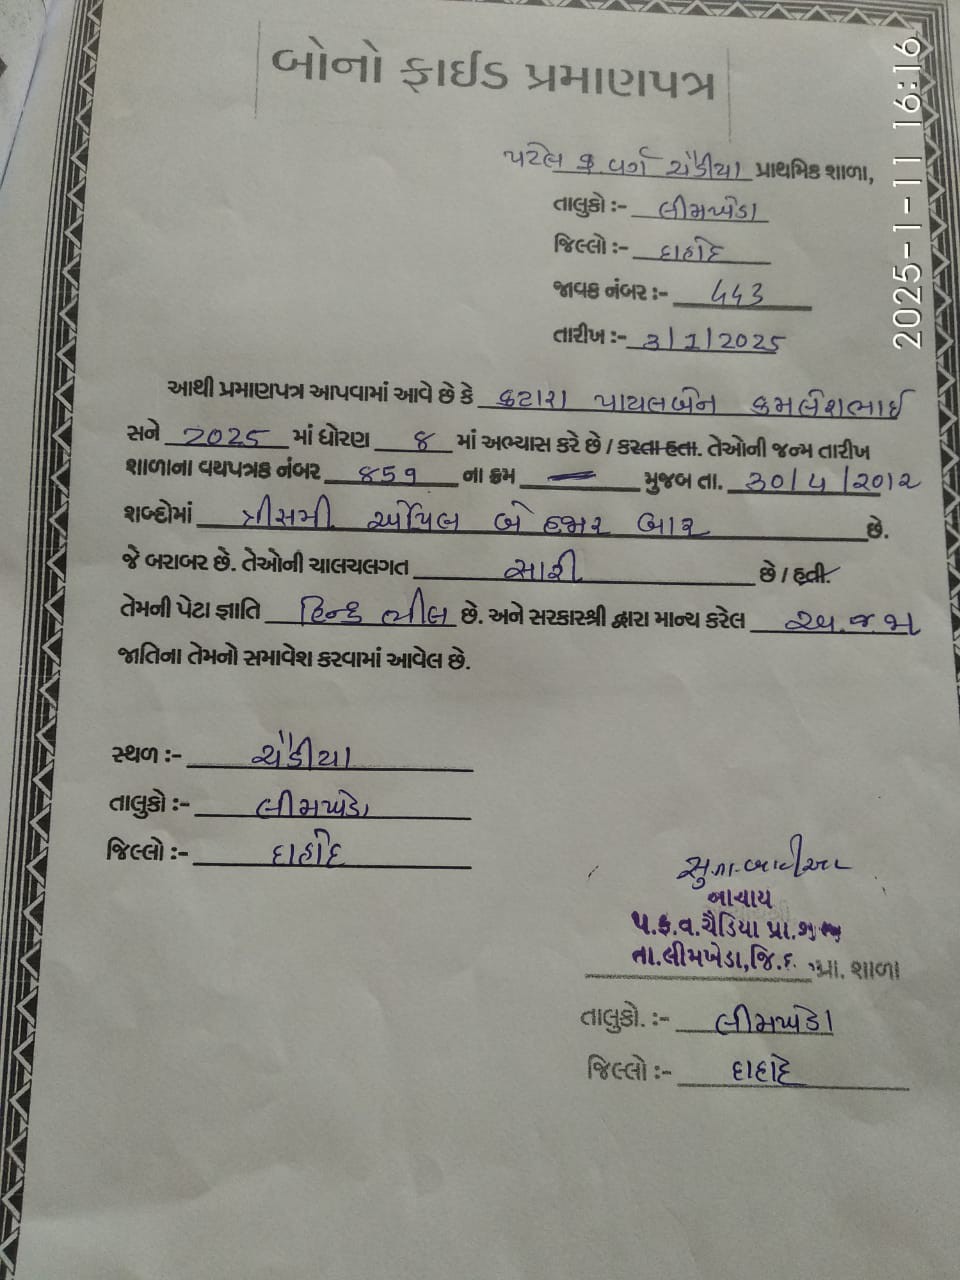 બોનો ફાઈડ પ્રમાણપત્ર
પટેલ ફ. વર્ગ ચૈડીયા પ્રાથમિક શાળા,
તાલુકો :- લીમખેડા
જિલ્લો :- દાહોદ
જાવક નંબર :- ૫૫૩
તારીખ :- 3/1/2025
આથી પ્રમાણપત્ર આપવામાં આવે છે કે કટારા પાયલબેન કમલેશભાઈ
સને 2025 માં ધોરણ ૮ માં અભ્યાસ કરે છે / કરતા હતા. તેઓની જન્મ તારીખ
શાળાના વયપત્રક નંબર ૮૫૧ ના ક્રમ — મુજબ તા. ૩૦/૫/૨૦૧૨
શબ્દોમાં ત્રીસમી બે હજાર બાર છે.
જે બરાબર છે. તેઓની ચાલચલગત સારી છે / હતી.
તેમની પેટા જ્ઞાતિ હિન્દુ ભીલ છે. અને સરકારશ્રી દ્વારા માન્ય કરેલ અ.જ.જા
જાતિના તેમનો સમાવેશ કરવામાં આવેલ છે.
સ્થળ :- ચૈડીયા
તાલુકો :- લીમખેડા
જિલ્લો :- દાહોદ
આચાર્ય
પ.ફ.વ.ચૈડિયા પ્રા.
તા.લીમખેડા,જિ.દ. પ્રા. શાળા
તાલુકો. :- લીમખેડા
જિલ્લો :- દાહોદ
2025-1-11 16:16